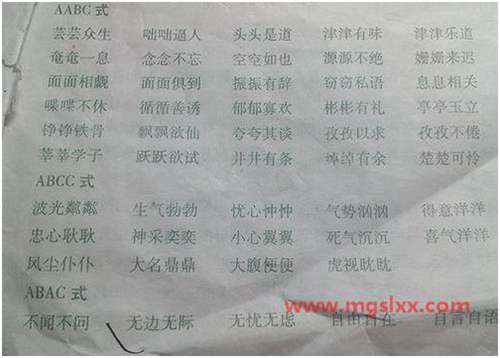 AABC 式
芸芸众生 咄咄逼人 头头是道 津津有味 津津乐道
奄奄一息 念念不忘 空空如也 源源不绝 姗姗来迟
面面相觑 面面俱到 振振有辞 窃窃私语 息息相关
喋喋不休 循循善诱 郁郁寡欢 彬彬有礼 亭亭玉立
铮铮铁骨 飘飘欲仙 夸夸其谈 孜孜以求 孜孜不倦
莘莘学子 跃跃欲试 井井有条 绰绰有余 楚楚可怜
ABCC 式
波光粼粼 生气勃勃 忧心忡忡 气势汹汹 得意洋洋
忠心耿耿 神采奕奕 小心翼翼 死气沉沉 喜气洋洋
风尘仆仆 大名鼎鼎 大腹便便 虎视眈眈
ABAC 式
www.mgslxx.com
不闻不问 无边无际 无忧无虑 自由自在 自言自语